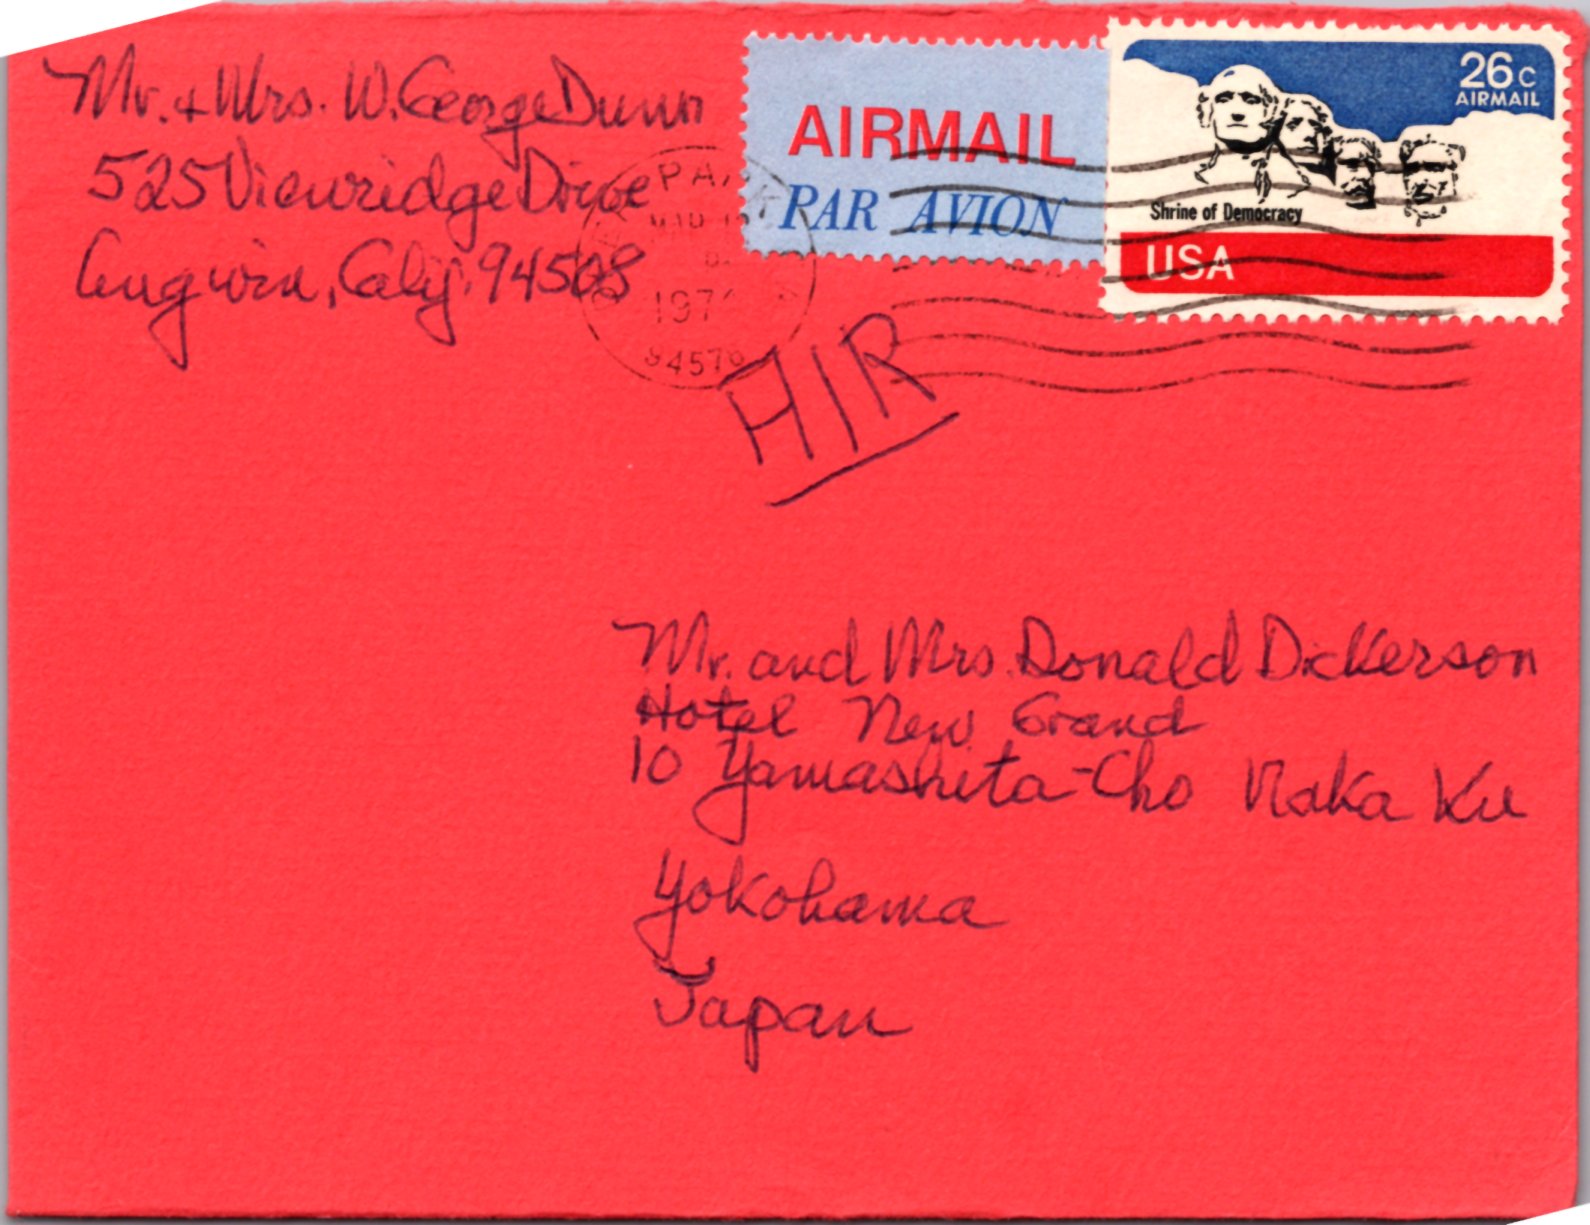 Mr. + Mrs. W. George Dunn
525 Viewridge Drive
Angwin, Calif. 94508
AIRMAIL
PAR AVION
26c
AIRMAIL
Shrine of Democracy
USA
PARK
MAR
197
94576
AIR
Mr. and Mrs. Donald Dickerson
Hotel New Grand
10 Yamashita-Cho Naka Ku
Yokohama
Japan